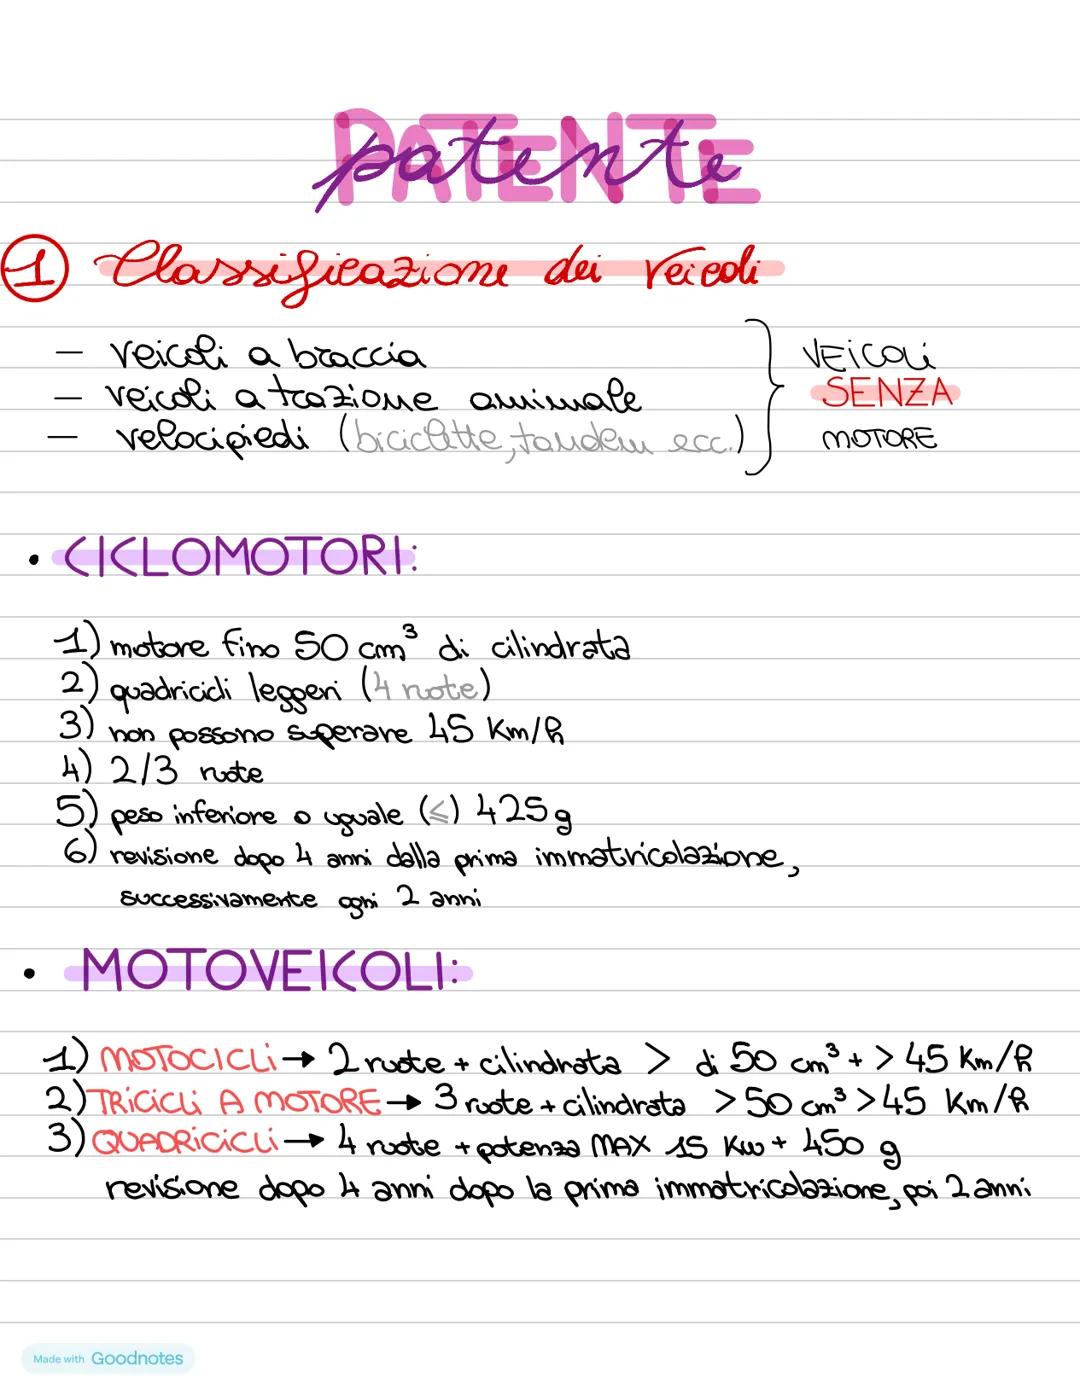 PATENTE
patente
1 Classificazione dei veicoli
– veicoli a braccia
– veicoli a trazione animale
– velocipiedi (biciclette, tandem ecc.)
VEICOLI
SENZA
MOTORE
• CICLOMOTORI:
1) motore fino 50 cm³ di cilindrata
2) quadricicli leggeri (4 ruote)
3) non possono superare 45 Km/h
4) 2/3 ruote
5) peso inferiore o uguale (≤) 425g
6) revisione dopo 4 anni dalla prima immatricolazione,
successivamente ogni 2 anni
• MOTOVEICOLI:
1) MOTOCICLI → 2 ruote + cilindrata > di 50 cm³ + > 45 Km/h
2) TRICICLI A MOTORE → 3 ruote + cilindrata > 50 cm³ > 45 Km/h
3) QUADRICICLI → 4 ruote + potenza MAX 15 Kw + 450 g
revisione dopo 4 anni dopo la prima immatricolazione, poi 2 anni
Made with Goodnotes